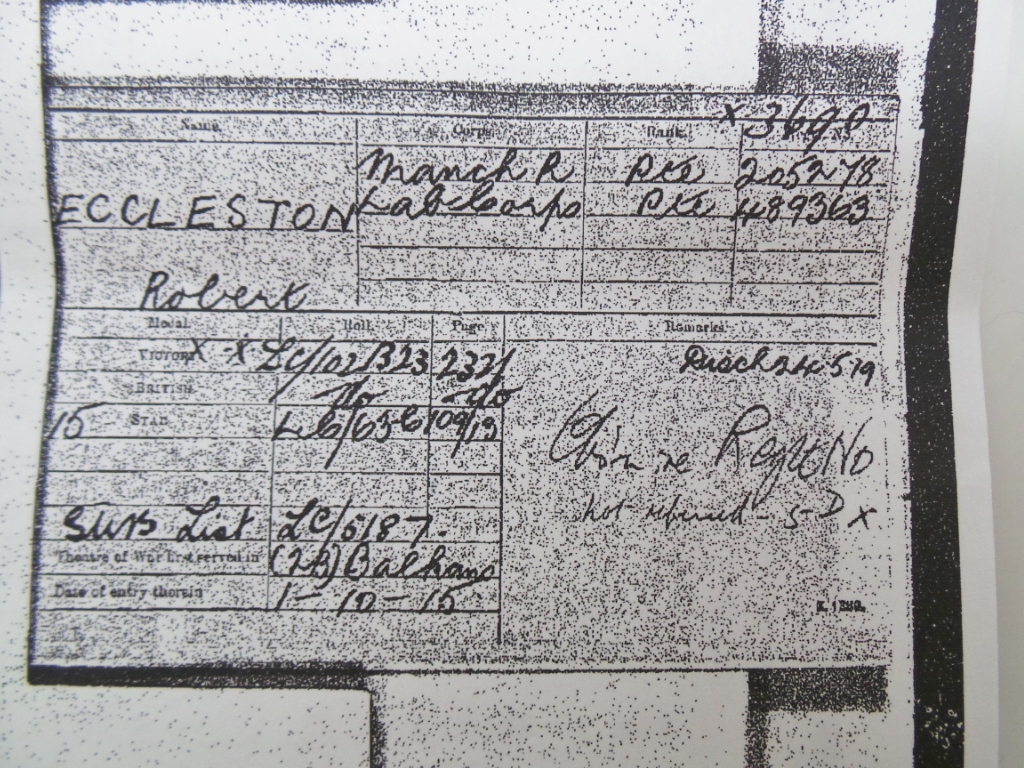 x 3690
Name. Corps. Rank. No.
Manch R Pte 205278
ECCLESTON Lab Corps Pte 489363
Robert
Medal. Roll. Page. Remarks.
VICTORY X X LC/102B23 2321 Disch 24 5 19
BRITISH do do
15 STAR L6/63 B 109/13
Regtl No
SWB List LC/5187.
Theatre of War first served in (2B) Balkans
Date of entry therein 1-10-15
K. 1380.